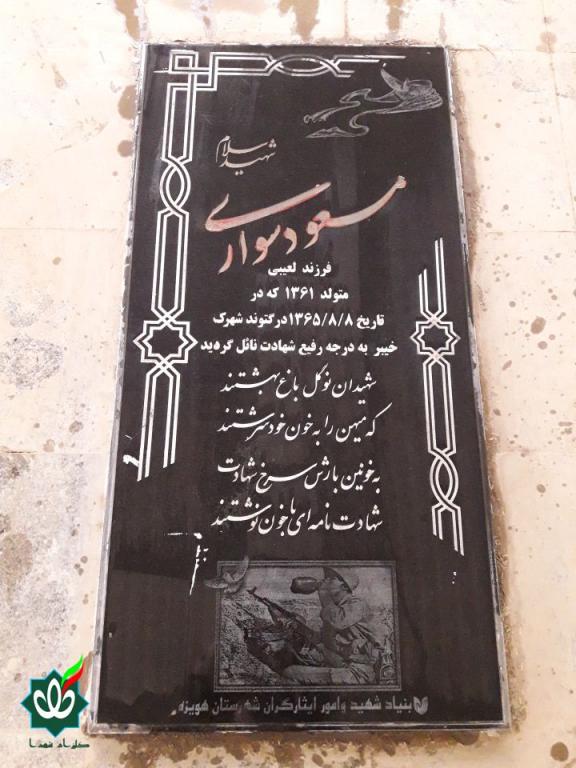 شهید اسلام
مسعود سواری
فرزند لعیبی
متولد ۱۳۶۱ که در
تاریخ ۱۳۶۵/۸/۸ در گتوند شهرک
خیبر به درجه رفیع شهادت نائل گردید
شهیدان نوگل باغ بهشتند
که میهن را به خون خود سرشتند
به خونین بارش سرخ شهادت
شهادت نامه ای با خون نوشتند
بنیاد شهید وامور ایثارگران شهرستان هویزه
گلزار شهدا